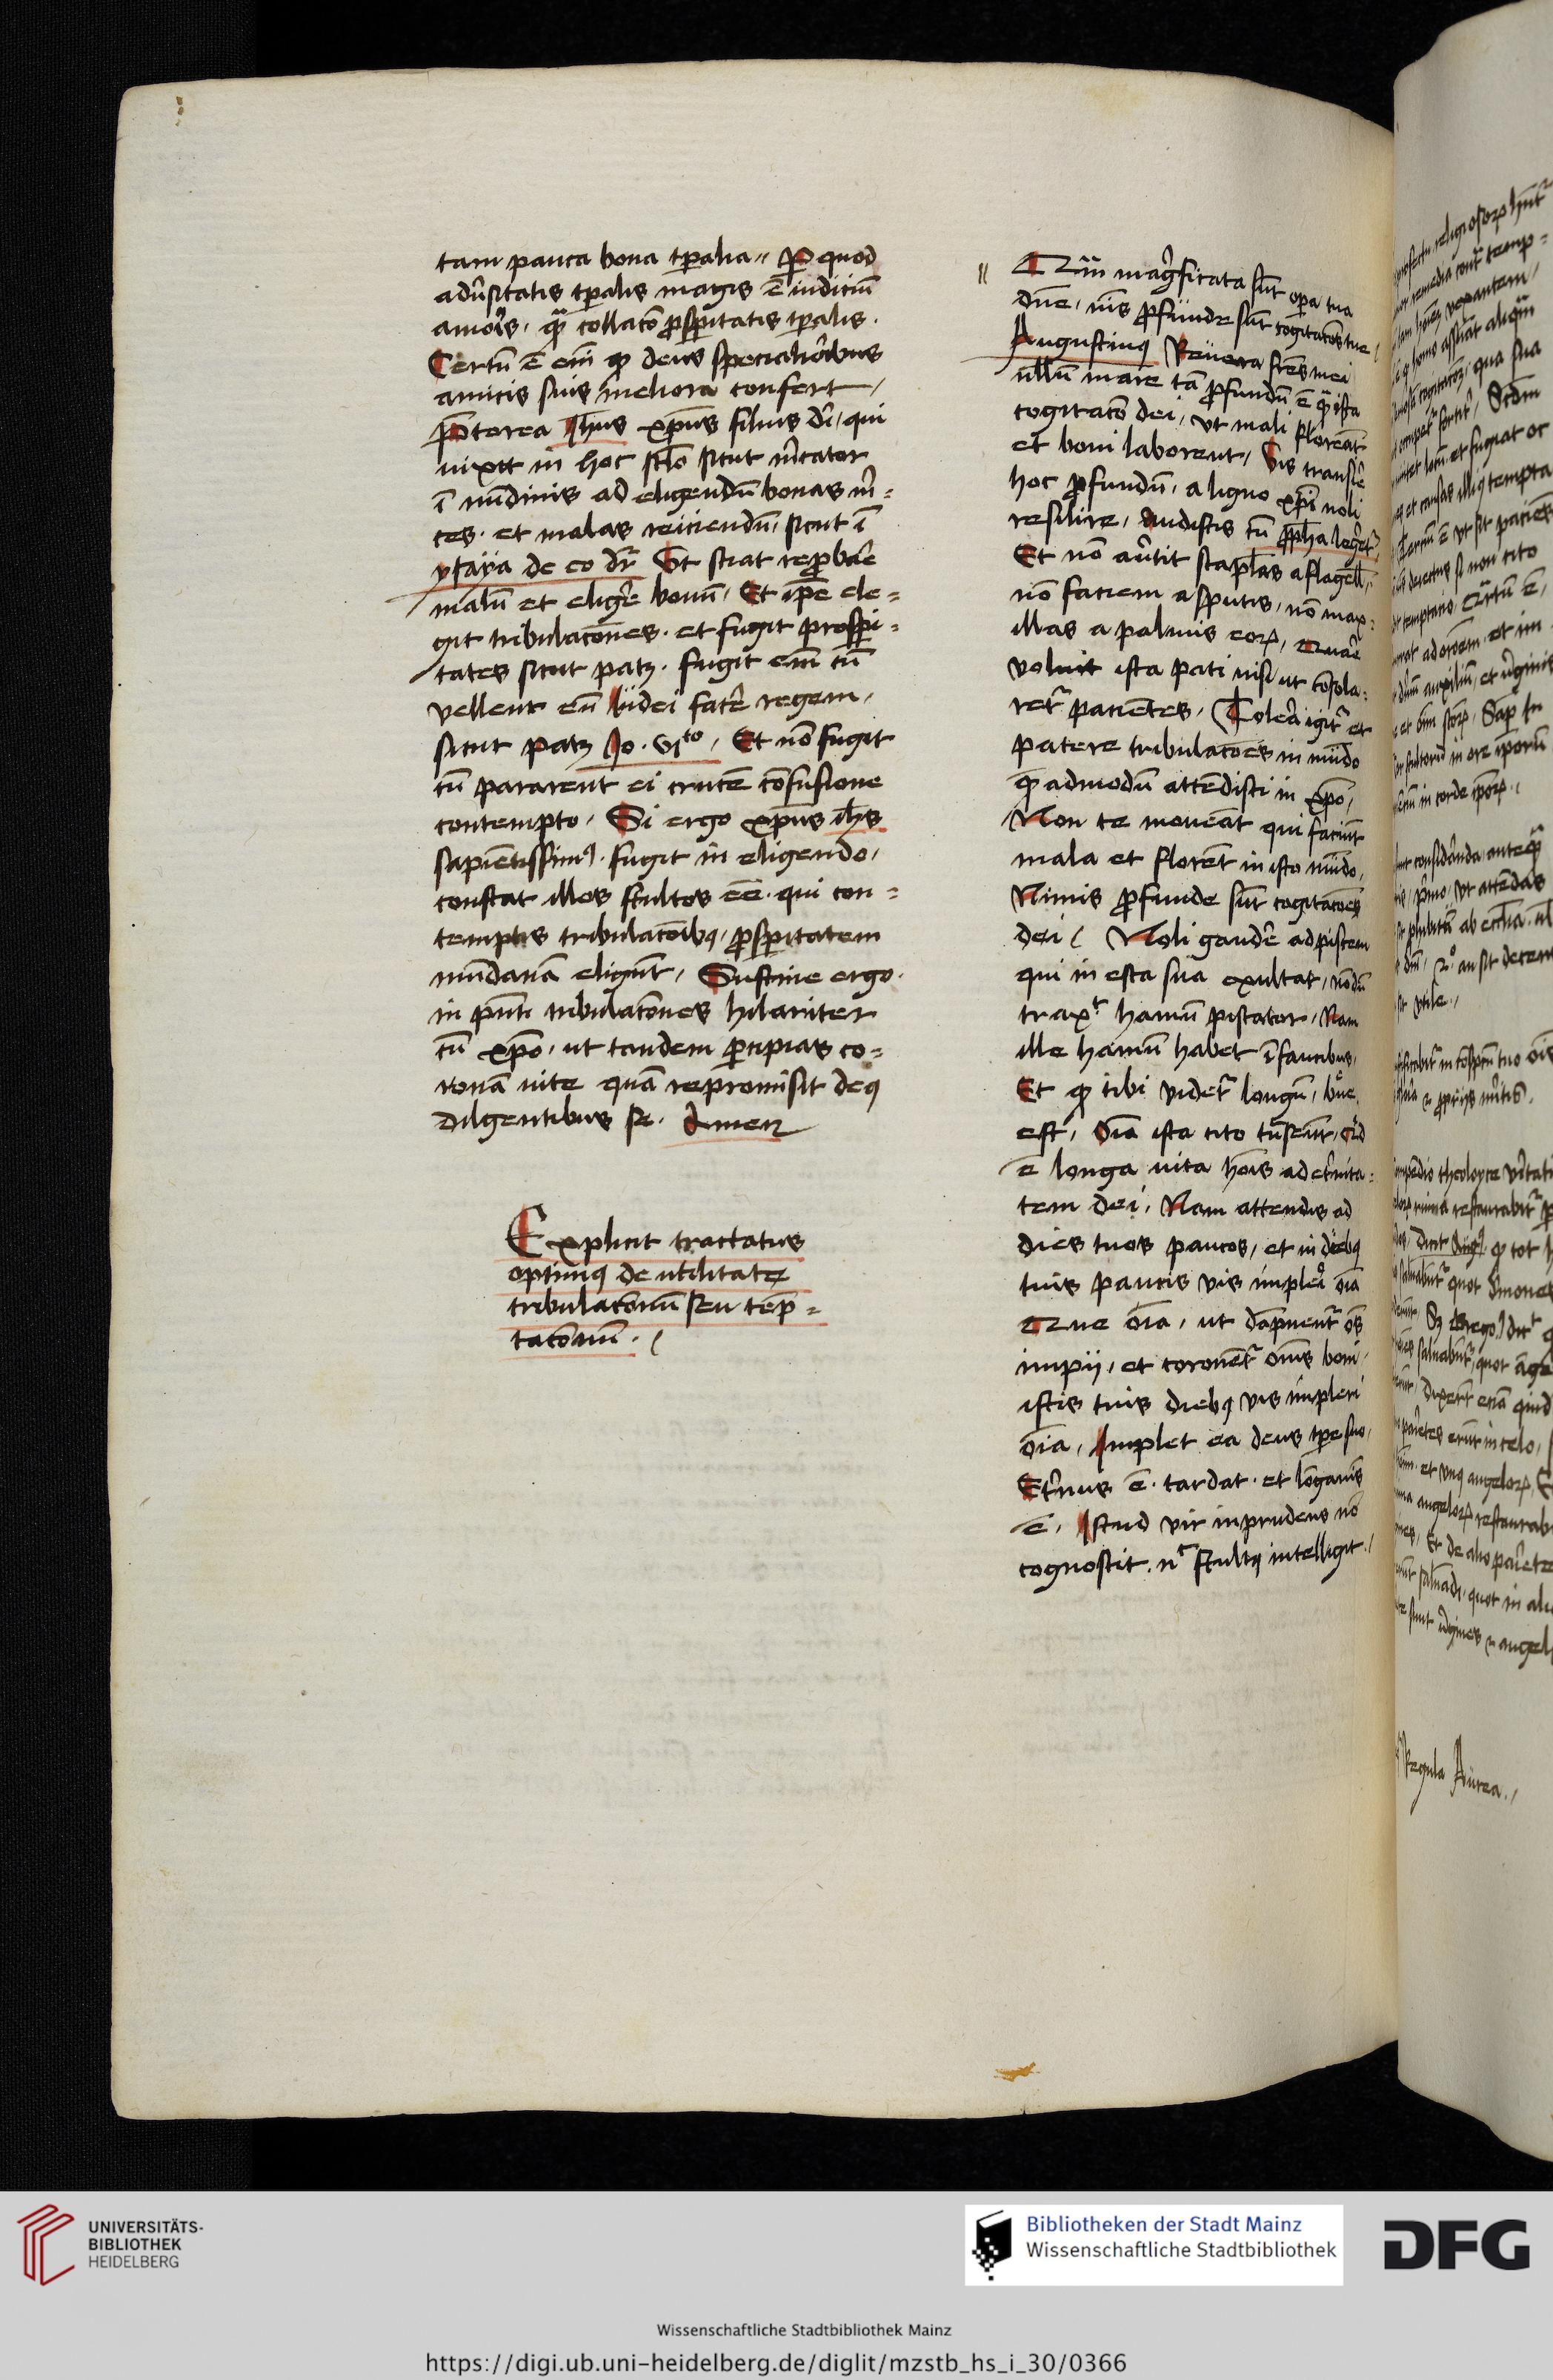 tam pauca bona tp̄alia ꝑ quod
adūsitatis tp̄alis magis ē indiciū
amoris, qͣꝫ collatō ꝓsp̄itatis tp̄alis.
Certū ē em̄ ꝙ deus specialioribus
amicis suis meliora confert,
ꝓpterea Jhūs xp̄us filius dī, qui
uixit in hoc sclō sicut m̄cator
ī nūdinis ad eligendū bonas m̄=
ces. et malas reiciendū, sicut ī
ysaÿa de eo dr̄ Ut sciat reꝓbaē
malū et eligē bonū, Et ip̄e ele=
git tribulacōnes. et fugit prosp̄i=
tates sicut patꝫ. fugit em̄ cū
vellent eū iudei facē regem,
sicut patꝫ Jo. vito, Et nō fugit
cū pararent ei crucē cōfusione
contempto, Si ergo xp̄us ih̄s
sapiētissimꝰ. fugit in eligendo,
constat illos stultos eē. qui con=
temptis tribulacōibꝫ, ꝓsp̄itatem
mūdanā eligūt, Sustine ergo.
in p̄nti tribulacōnes hilariter
cū xp̄o, ut tandem ꝑcipias co=
ronā uite quā repromisit deꝰ
diligentibus se. Amen
Explicit tractatus
optimꝰ de utilitate
tribulacōnū seu tēp=
tacōnū.
Qͣꝫ mag̅ficata sūt oꝑa tua
dn̄e, nīs ꝓfūnde sūt cogitacōes tue
Augustinꝰ Reuera frēs mei
nllū mare tā ꝓfundū ē qͣꝫ ista
cogitacō dei, vt mali floreāt
et boni laborent, Vis transiē
hoc ꝓfundū, a ligno xp̄i noli
resilire, Audistis cū ꝓph̄a legeretᷣ
Et nō auertit scapl̄as a flagell,
nō faciem a sputis, nō max=
illas a palmis eoꝝ, Quaē
voluit ista pati nisi ut cōsola=
retᷣ pacientes, Tolerā igitᷣ et
patere tribulacōes in mūdo
q̄admodū attēdisti in xp̄o,
Non te moueāt qui faciūt
mala et florēt in isto mūdo,
Nimis ꝓfunde sūt cogitacōes
dei Noli gaudē ad piscem
qui in esca sua exultat, nōdū
traxᵗ hamū piscator, Nam
ille hamū habet ī faucibus,
Et ꝙ tibi videtᷣ longū, bue
est, Oīa ista cito trāseūt, Qid
ē longa uita hoīs ad et̄nita=
tem dei, Nam attendis ad
dies tuos paucos, et in diebꝫ
tuis paucis vis impleri oīa
Que oīa, ut dāpnentᷣ oēs
impij, et coronētᷣ omēs boni,
istis tuis diebꝫ vis impleri
oīa, Implet ea deus tp̄e suo,
Et̄nus ē. tardat. et lōganīs
ē, Istud vir inprudens nō
cognoscit. nᶜ stultꝰ intelligit
Regula Aurea.
UNIVERSITÄTS-
BIBLIOTHEK
HEIDELBERG
Bibliotheken der Stadt Mainz
Wissenschaftliche Stadtbibliothek
DFG
Wissenschaftliche Stadtbibliothek Mainz
https://digi.ub.uni-heidelberg.de/diglit/mzstb_hs_i_30/0366